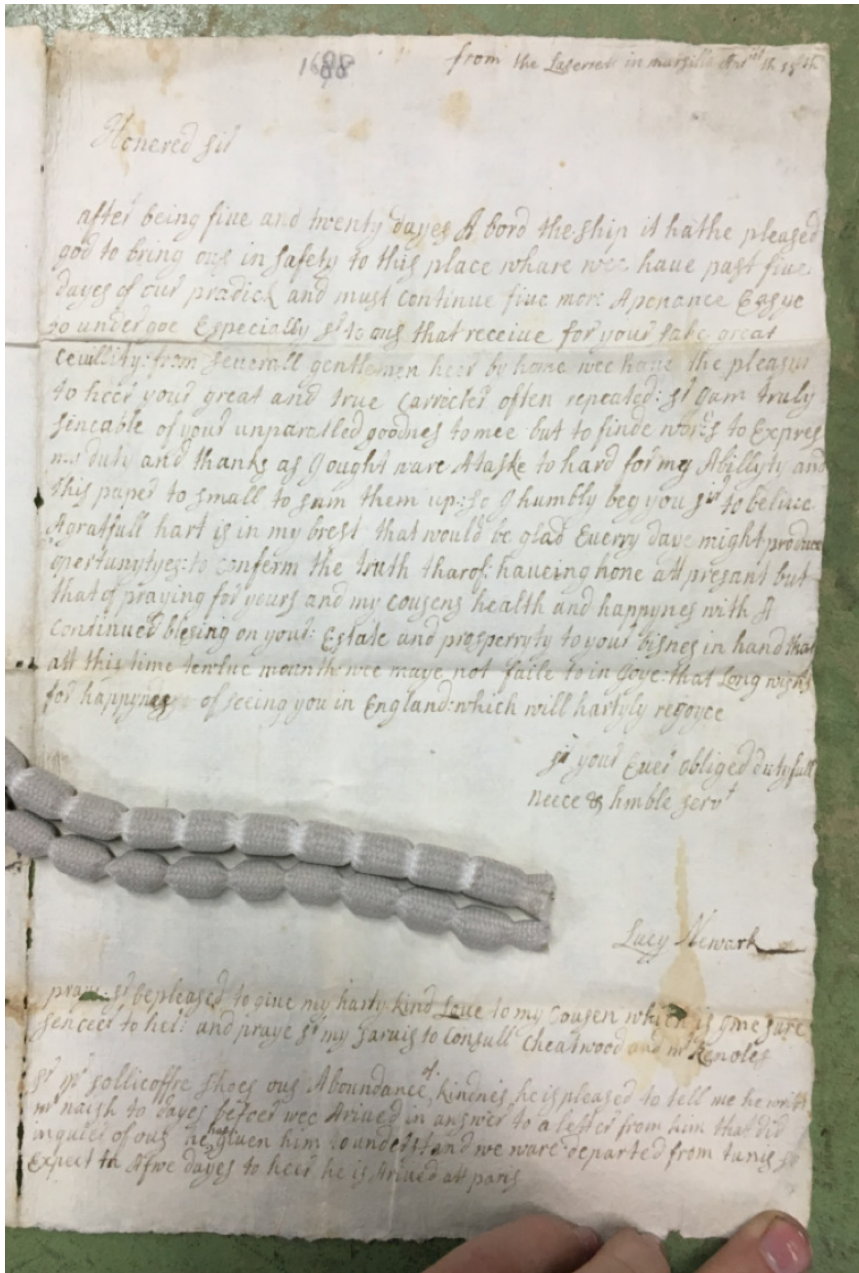 1688
from the Laserrett in marsills Apr:ll th 15th
Honered sir
after being fiue and twenty dayes A bord the ship it hathe pleased
god to bring ous in safety to this place whare wee have past fiue
dayes of our pradick and must continue fiue more A penance Easye
to undergoe Especially sr to ous that receiue for your sake great
cevillity: from severall gentlemen heer by home wee have the pleasur
to heer your great and true Carrecter often repeated: sr I am truly
sincable of your unparalled goodnes to mee but to finde words to Expres
my duty and thanks as I ought ware A taske to hard for my Abillyty and
this paper to small to sum them up: so I humbly beg you sir to beliue
A gratfull hart is in my brest that would be glad Euerry daye might produce
opertunytyes: to conferm the truth tharof: haueing none att presant but
that of praying for yours and my cousens health and happynes with A
continued blesing on your: Estate and prosperryty to your bisnes in hand that
att this time twelue mounth wee maye not faile to in Joye: that Long wisht
for happynes of seeing you in England: which will hartyly regoyce
sr your Euer obliged dutyfull
neece & humble servt
Lucy Newark
praye: sr be pleased to giue my harty kind Loue to my Cousen which is I me sure
senceer to her: and praye sr my sarvis to Consull Cheatwood and mr Kenoles
sr mr sollicoffre shoes ous Aboundance of kindnis he is pleased to tell me he writ
mr naish to dayes befoer wee Ariued in answer to a letter from him that did
inquier of ous he has giuen him to understand we ware departed from tunis so
Expect in A fwe dayes to heer he is Ariued att paris